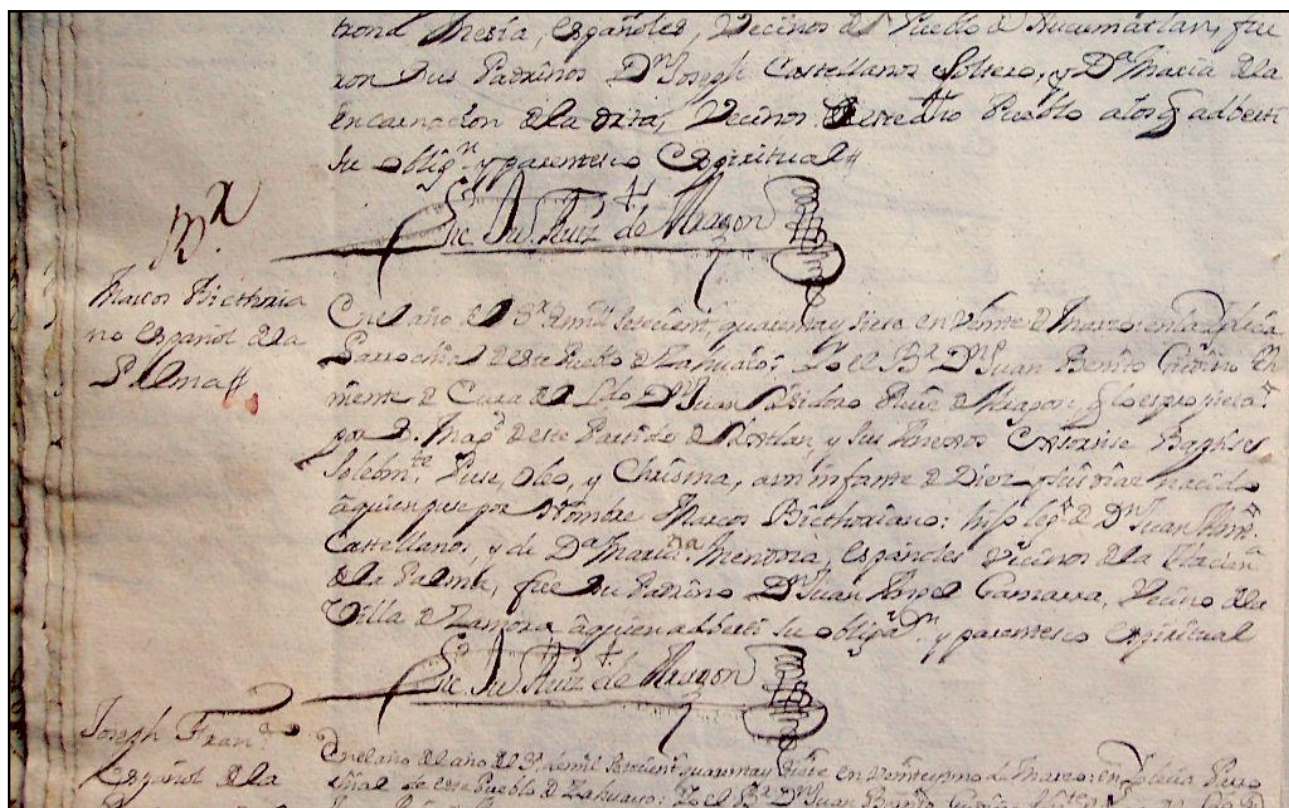 trona Mesia, españoles, Vecinos del Pueblo de Hucumatlan, fue
ron sus Padrinos Dn Joseph Castellanos Soltero, y Da Maria de la
Encarnacion de la dita, Vecinos de este dho Pueblo a los q adberti
su obligon y parentesco Espiritual
Lic Ju. Ruiz de Aragon
Marcos Bicthoria
no español de la
Palma
En el año del Sr de mil Setecient quarenta y Siete en Veinte de Marzo en la Iglesia
Parrochial de este Pueblo de Zahuaio: Yo el Br Dn Juan Benito
miente de Cura del Ldo Dn Juan Isidoro Ruiz de Aragon, q lo es propieta
por S. Magd de este Partido de Ixtlan, y sus Anexos Exorcise Baptise
Solebmte Puse, oleo, y Chrisma, a un infante de Diez dias nacido
à quien puse por Nombre Marcos Bicthoriano: hijo legmo de Dn Juan Anto
Castellanos, y de Da Mariana Mendosa, Españoles Vicinos de la Hacienda
de la Palma, fue su Padrino Dn Juan Angel Gamarra, Vecino de la
Villa de Zamora à quien adberti su obligan y parentesco espiritual
Lic Ju Ruiz de Aragon
Joseph Franco
Español de la
En el año del año del Sr de mil Setecient quarenta y Siete en Veinte y uno de Marzo en la Iglecia Parro
chial de este Pueblo de Zahuaio: Yo el Br Dn Juan Benito